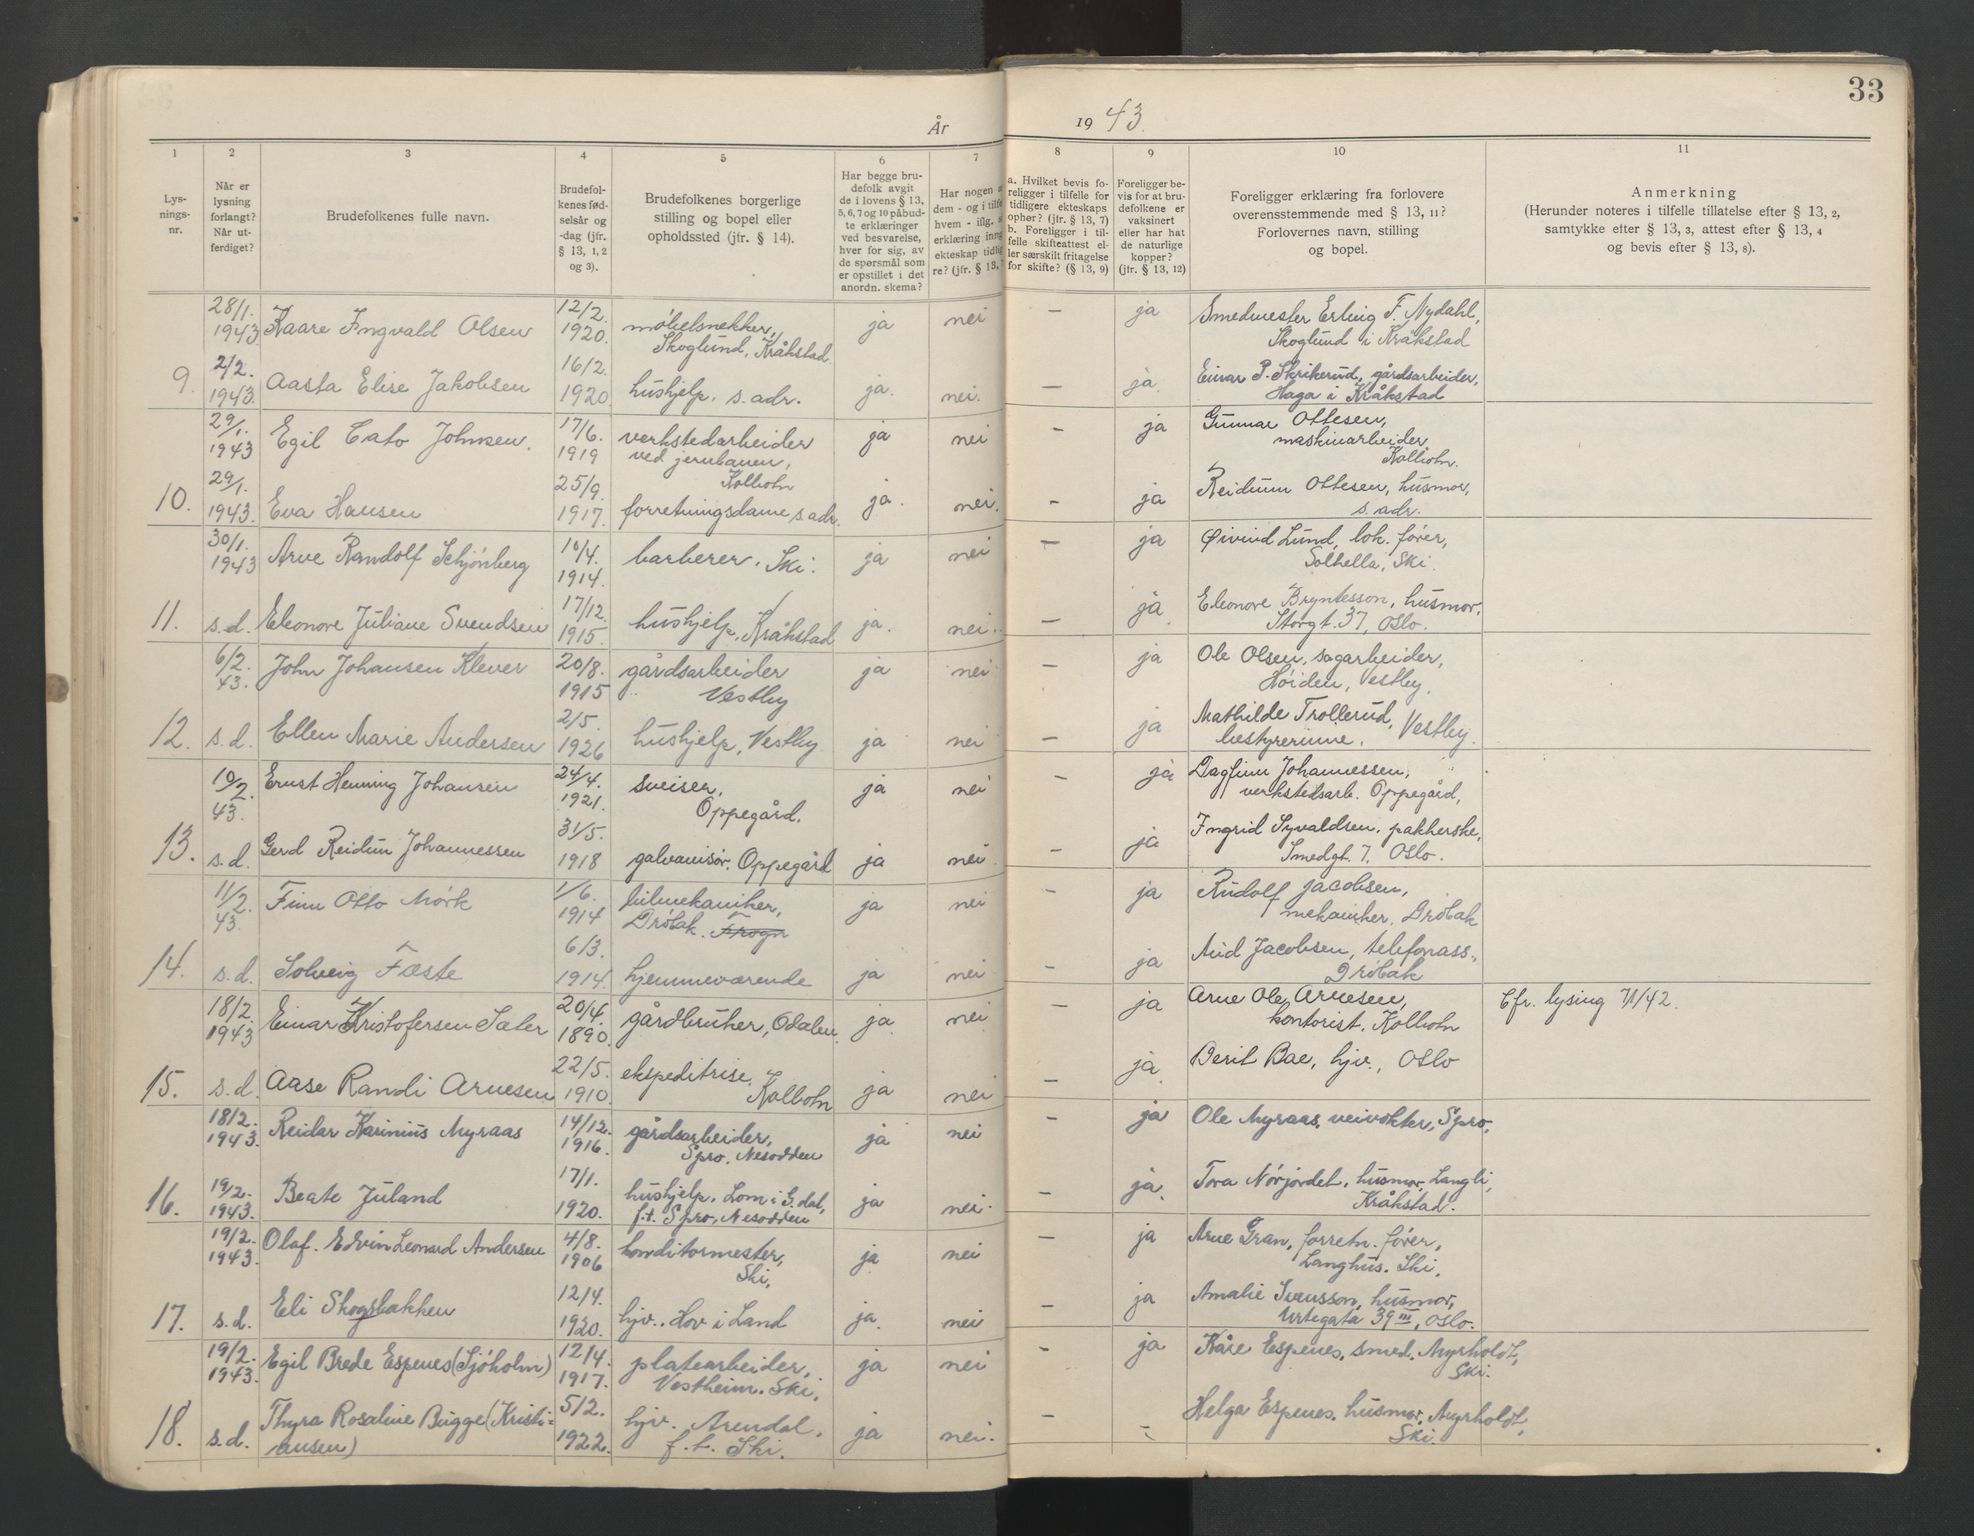 33
År 1943.
1 2 3 4 5 6 7 8 9 10 11
Lys-
nings-
nr.
Når er
lysning
forlangt?
Når ut-
ferdiget?
Brudefolkenes fulle navn.
Brudefol-
kenes fød-
selsår og
-dag (jfr.
§ 13, 1, 2
og 3).
Brudefolkenes borgerlige
stilling og bopel eller
opholdssted (jfr. § 14).
Har begge bru-
defolk avgit
de i lovens § 13,
5, 6, 7 og 10 påbud-
te erklæringer
ved besvarelse,
hver for sig, av
de spørsmål som
er opstillet i det
anordn. skema?
Har nogen a
dem - og i tilfe
hvem - iflg. s
erklæring inng
ekteskap tidlig
re? (jfr. § 13, 7
a. Hvilket bevis fo-
religger i tilfelle for
tidligere ekteskaps
ophør? (jfr. § 13, 7)
b. Foreligger i til-
felle skifteattest el-
ler særskilt fritagelse
for skifte? (§ 13, 9)
Foreligger be-
vis for at bru-
defolkene er
vaksinert
eller har hat
de naturlige
kopper?
(jfr. § 13, 12)
Foreligger erklæring fra forlovere
overensstemmende med § 13, 11?
Forlovernes navn, stilling
og bopel.
Anmerkning
(Herunder noteres i tilfelle tillatelse efter § 13, 2,
samtykke efter § 13, 3, attest efter § 13, 4
og bevis efter § 13, 8).
28/1. 1943 Kaare Ingvald Olsen 12/2. 1920. møbelsnekker, Skoglund, Kråkstad ja nei — ja Smedmester Erling F. Nydahl, Skoglund i Kråkstad
9. 2/2. 1943. Aasta Elise Jakobsen 16/2. 1920 hushjelp. s. adr. ja. nei. — ja. Einar P. Skrikerud, gårdsarbeider, Haga i Kråkstad
29/1. 1943 Egil Cato Johnsen. 17/6. 1919 verkstedarbeider ved jernbanen, Kolbotn ja nei — ja Gunnar Ottesen, maskinarbeider, Kolbotn.
10. 29/1. 1943. Eva Hansen 25/9. 1917. forretningsdame s. adr. ja. nei. — ja Reidun Ottesen, husmor, s. adr.
30/1. 1943 Arve Randolf Schjønberg 10/4. 1914. barberer. Ski. ja nei — ja Øivind Lund, lok. fører, Solhella, Ski.
11. s.d. Eleonore Juliane Svendsen 17/12. 1915 hushjelp, Kråkstad ja. nei. — ja. Eleonore Bryntesson, husmor, Storgt. 37, Oslo.
6/2. 43. John Johansen Klever 20/8. 1915 gårdsarbeider Vestby ja nei — ja Ole Olsen, sagarbeider, Høiden, Vestby.
12. s.d. Ellen Marie Andersen 2/5. 1926 hushjelp, Vestby ja nei — ja Mathilde Trollerud, bestyrerinne. Vestby.
10/2. 43. Ernst Henning Johansen 24/4. 1921. sveiser, Oppegård. ja nei — ja Dagfinn Johannessen, verkstedsarb. Oppegård,
13. s.d. Gerd Reidun Johannessen 31/5. 1918 galvanisør. Oppegård ja nei. — ja Ingrid Syvaldsen. pakkerske, Smedgt. 7. Oslo.
11/2. 43. Finn Otto Mørk 1/6. 1914 bilmekaniker, Drøbak. Frogn ja nei — ja Rudolf Jacobsen, mekaniker, Drøbak
14. s.d. Solveig Fæste 6/3. 1914. hjemmeværende ja nei — ja Aud Jacobsen, telefonass., Drøbak
18/2. 1943 Einar Kristofersen Sæter 20/4. 1890. gårdbruker, Odalen. ja. nei — ja Arne Ole Arnesen, kontorist, Kolbotn Cfr. lysing 7/1/42.
15. s.d. Aase Randi Arnesen 22/5. 1910. ekspeditrise. Kolbotn ja nei — ja Berit Bae, hjv., Oslo
18/2. 1943. Reidar Karinius Myraas 14/12. 1916. gårdsarbeider, Spro. Nesodden ja nei — ja Ole Myraas, veivokter, Spro,
16. 19/2. 1943. Beate Juland 17/1. 1920. hushjelp. Lom i G.dal, f.t. Spro, Nesodden ja nei. — ja. Tora Nørjordet, husmor, Langli, Kråkstad.
19/2. 1943. Olaf. Edvin Leonard Andersen 4/8. 1906 konditormester, Ski, ja nei — ja Arne Gran, forretn. fører, Langhus. Ski,
17. s.d. Eli Skogsbakken 12/4. 1920. hjv.. Hov i Land ja. nei — ja Amalie Svensson, husmor, Urtegata 39 III, Oslo.
19/2. 1943. Egil Brede Espenes (Sjøholm) 12/4. 1917. platearbeider, Vestheim. Ski, ja nei — ja Kåre Espenes, smed, Myrholdt, Ski.
18. s.d. Thyra Rosaline Bugge (Kristi-ansen) 5/2. 1922. hjv. Arendal. f.t. Ski. ja nei. — — Helga Espenes, husmor, Myrholdt, Ski.